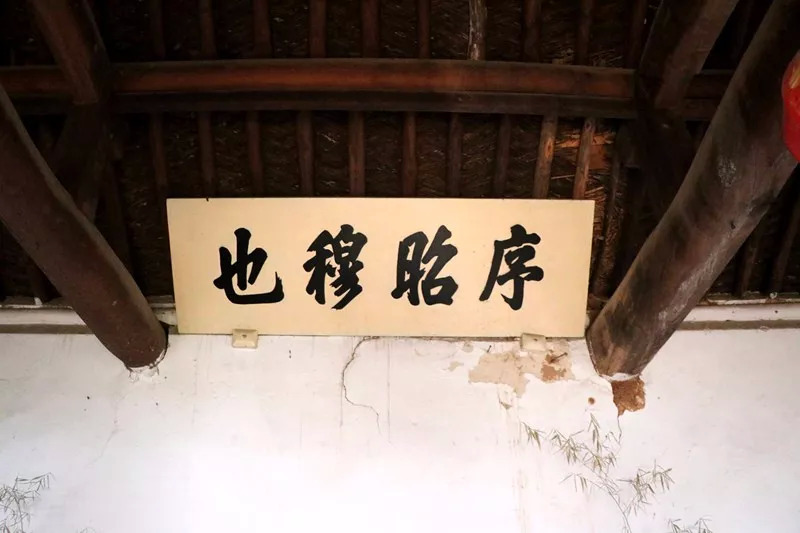 序昭穆也